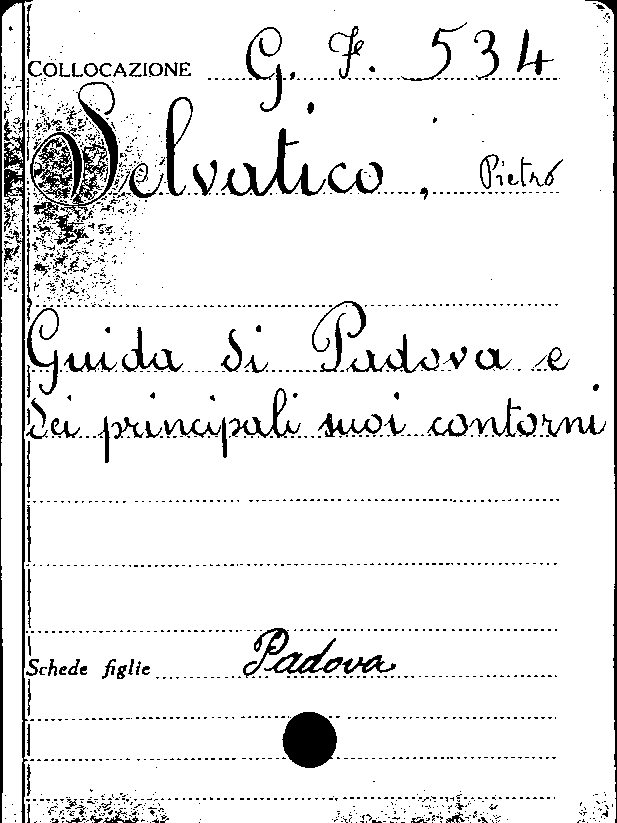 COLLOCAZIONE G. Fe. 534
Selvatico, Pietro
Guida di Padova e
dei principali suoi contorni
Schede figlie Padova